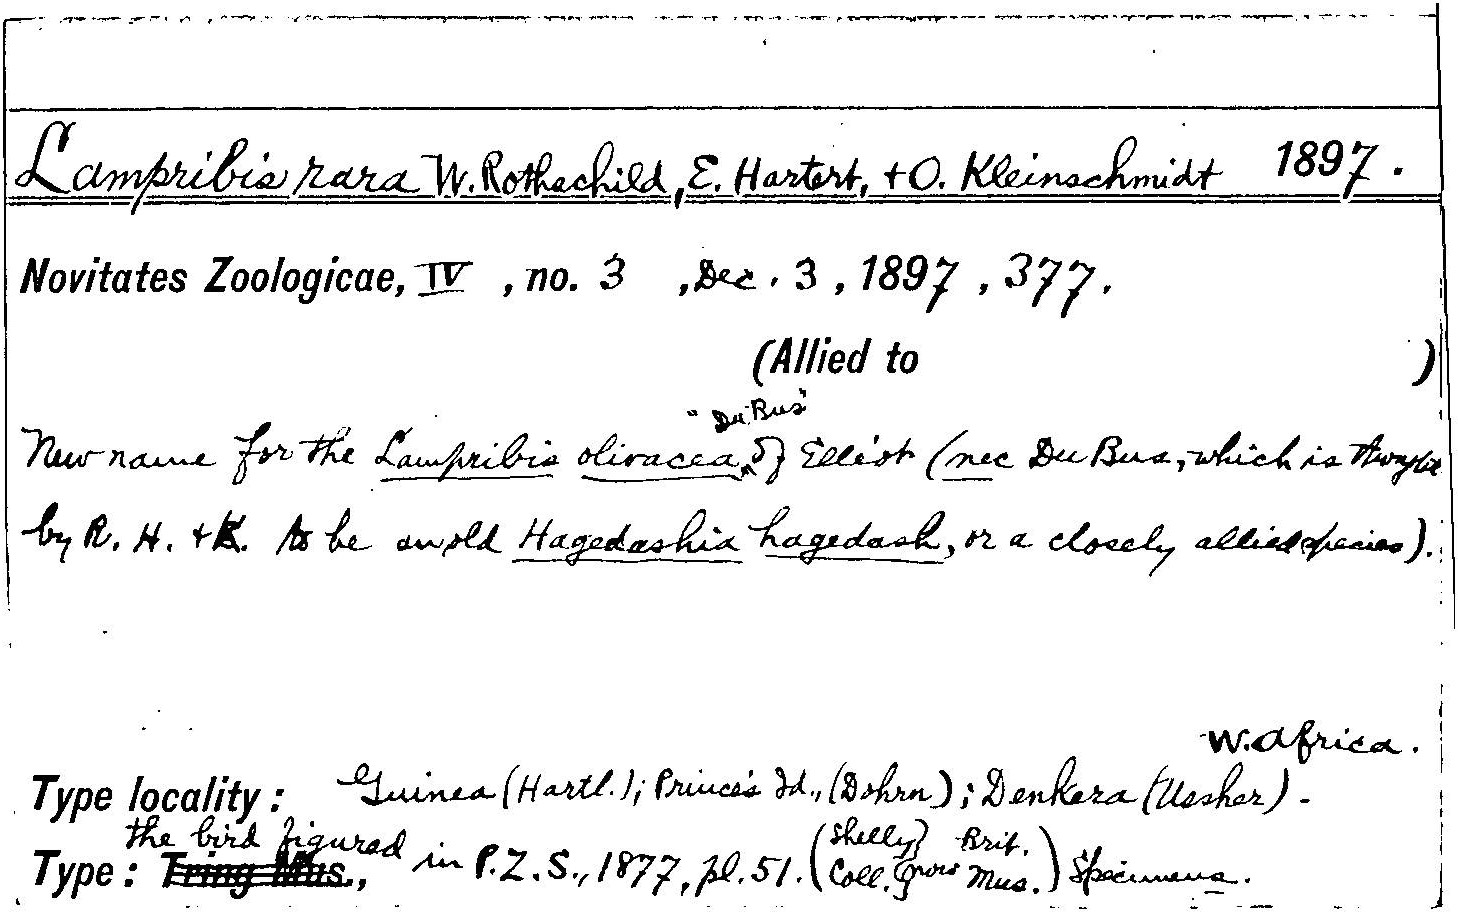 Lampribis rara W. Rothschild, E. Hartert, + O. Kleinschmidt 1897.
Novitates Zoologicae, IV, no. 3, Dec. 3, 1897, 377.
(Allied to )
"Du Bus"
New name for the Lampribis olivacea of Elliot (nec Du Bus, which is thought
by R. H. + K. to be an old Hagedashia hagedash, or a closely allied species).
W. Africa.
Type locality: Guinea (Hartl.); Prince's Id., (Dohrn); Denkera (Ussher).
the bird figured
Type: Tring Mus., in P.Z.S., 1877, pl. 51. (Shelly Coll. now Brit. Mus.) Specimens.